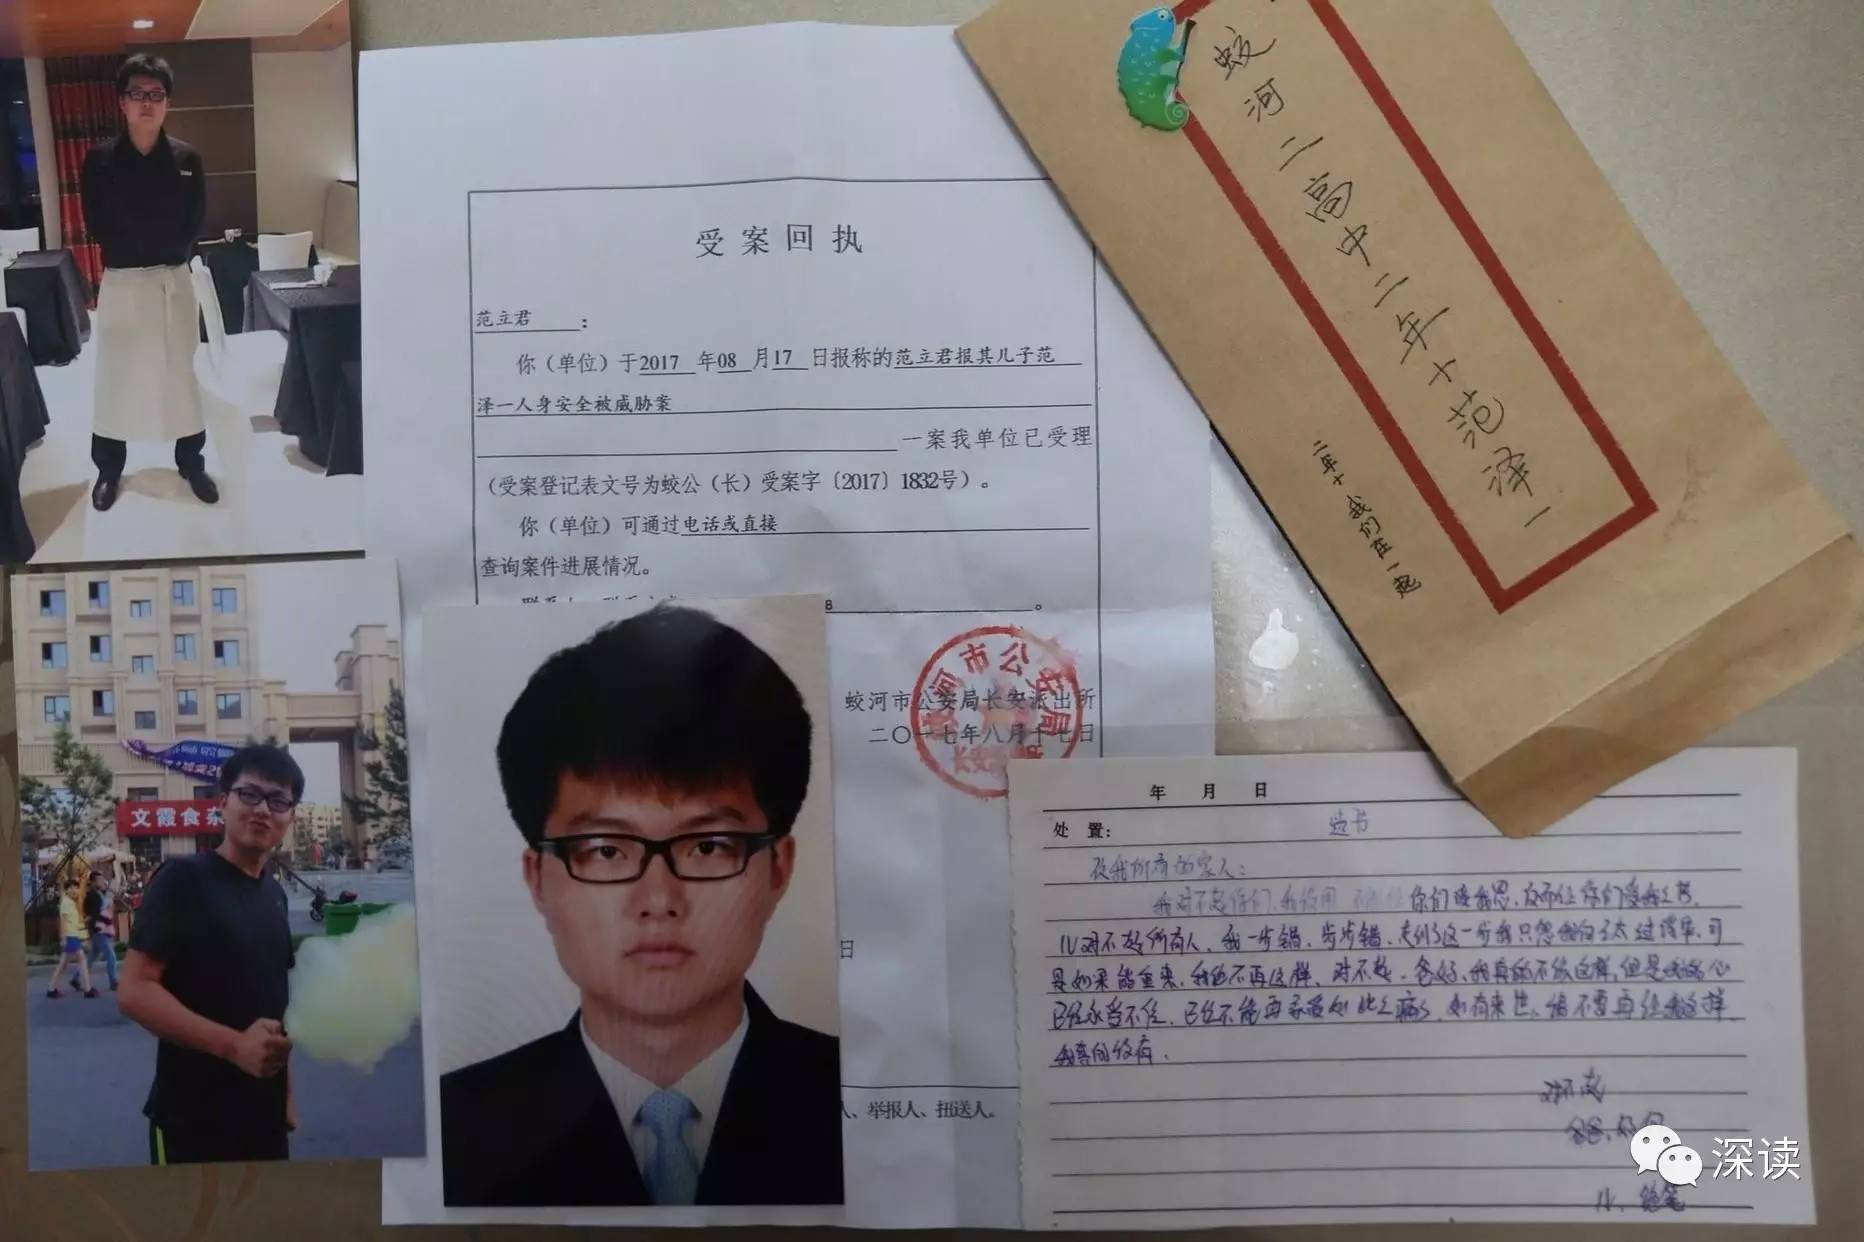 受案回执
范立君:
你（单位）于2017年08月17日报称的范立君报其儿子范
泽一人身安全被威胁案
一案我单位已受理
（受案登记表文号为蛟公（长）受案字〔2017〕1832号）。
你（单位）可通过电话或直接
查询案件进展情况。
8。
蛟河市公安局长安派出所
二〇一七年八月十七日
蛟河市公安局
日
人、举报人、扭送人。
蛟河二高中二年十范泽一
二年十我们在一起
文霞食杂
年 月 日
处 置:
遗书
致我所有的家人:
我对不起你们,我没用
你们
对不起所有人,我一步错,步步错,走到了这一步我只怨我自己太过懦弱,可
是如果能重来,我绝不再这样,对不起,爸妈,我真的不给这样,但是我的心
已经承受不住,已经不能再承受如此之痛,如有来世,
对不起
爸爸、妈妈
儿、绝笔
深读